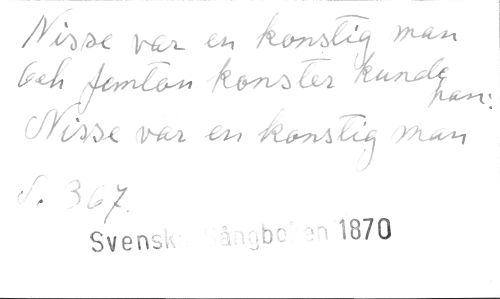 Nisse var en konstig man
Och femton konster kunde
han:
Nisse var en konstig man
S. 367.
Svenska Sångboken 1870